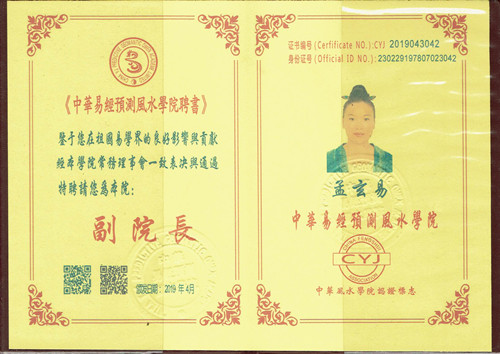 《中華易經預測風水學院聘書》
鑒于您在祖國易學界的良好影響與貢獻
經本學院常務理事會一致表決與通過
特聘請您爲本院：
副院長
頒發日期：2019年4月
证书编号(Cerfificate NO.):CYJ 2019043042
身份证号(Official ID NO.):230229197807023042
孟玄易
中華易經預測風水學院
CHINA FENGSHUI
CYJ
ASSOCIATION
中華風水學院認證標志